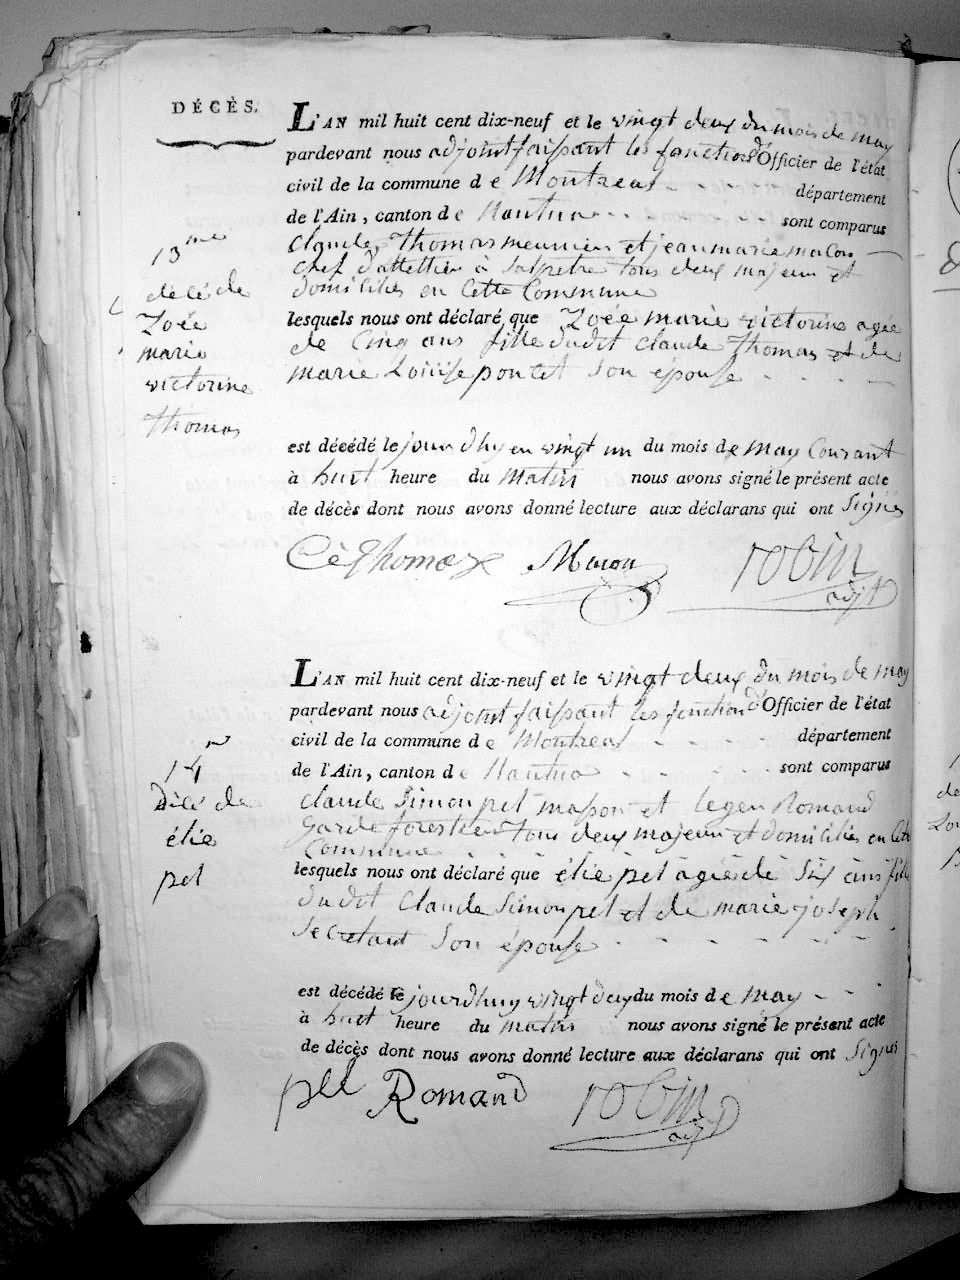 DÉCÈS.
L'AN mil huit cent dix-neuf et le vingt deux du mois de may
pardevant nous adjoint faissant les fonctions d'Officier de l'état
civil de la commune de Montreal département
de l'Ain, canton de Nantua sont comparus
claude thomas meunier et jean marie macon
chef d'attellier à salpetre tous deux majeur et
domiciliés en cette Commune
lesquels nous ont déclaré que Zoée marie victorine agée
de Cinq ans fille dudit claude Thomas et de
marie Loüise poncet son épouse
est décédé le jourdhuy en vingt un du mois de may Courant
à huit heure du matin nous avons signé le présent acte
de décès dont nous avons donné lecture aux déclarans qui ont signés
13me
décé de
Zoée
marie
victorine
thomas
Cè thomas Macon robin
adjt
L'AN mil huit cent dix-neuf et le vingt deux du mois de may
pardevant nous adjoint faissant les fonction d'Officier de l'état
civil de la commune de Montreal département
de l'Ain, canton de Nantua sont comparus
claude Simon pel masson et Romand
garde forestier tous deux majeur et domiciliés en Cette
Commune
lesquels nous ont déclaré que élie pel agée de six ans fille
dudit Claude Simon pel et de marie joseph
son épouse
est décédé le jourdhuy vingt deux du mois de may
à huit heure du matin nous avons signé le présent acte
de décès dont nous avons donné lecture aux déclarans qui ont signés
14
Décé de
élie
pel
pel Romand robin
adjt